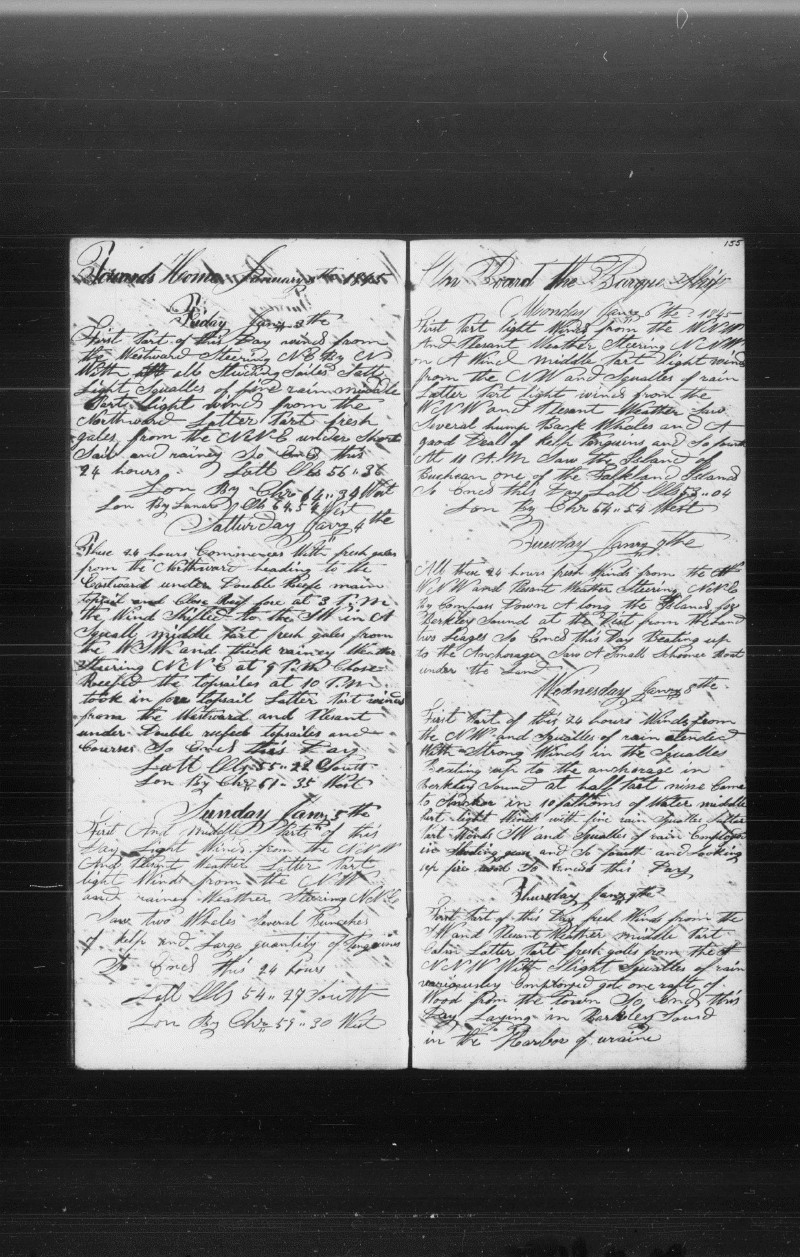 Towards Home January 1845
Friday Janry 3 the
First Part of this Day winds from
the Westward Steering NE By N
With all Studing Sailes Latt
Light Squalles of fine rain middle
Part Light winds from the
Northward Latter Part fresh
gales from the NNE under Short
Sail and rainey So Ends this
24 hours Latt Obs 56 " 36
Lon By Chr 64 " 34 West
Lon By Lunar Ob 64.54 West
Satturday Janry 4 the
These 24 hours Commences With fresh gales
from the Northward heading to the
Eastward under Double Reefe main
topsail and Close Reef fore at 3 P.M
the Wind Shifted to the SW in A
Squall middle Part fresh gales from
the WSW and thick rainey Weather
Stearing NNE at 9 P.M Close
Reefed the topsailes at 10 P.M
took in fore topsail Latter Part winds
from the Westward and Plesant
under Double reefed topsailes and
Courses So Ends this Day
Latt Obs 55 " 22 South
Lon By Chr 61 " 35 West
Sunday Janry 5 the
First And middle Parts of this
Day Light Winds from the NNW
And Plesant Weather Latter Part
light Winds from the NW
and rainey Weather Stearing NNE
Saw two Whales Several Bunches
of kelp and Large quantity of Penguines
So Ends this 24 hours
Latt Obs 54 " 27 South
Lon By Chr 59 " 30 West
155
On Board the Barque Ship
Monday Janry 6 the 1845
First Part light Winds from the WNW
And Plesant Weather Steering NNW
on A Wind middle Part Light winds
from the NW and Squalles of rain
Latter Part Light winds from the
WNW and Plesant Weather Saw
Several hump Back Whales and A
good Deal of Kelp Penguins and So fourth
At 11 A.M Saw the Island of
Buchean one of the Falkland Islands
So Ends this Day Latt Obs 53 " 04
Lon By Chr 64 " 54 West
Tuesday Janry 7 the
All these 24 hours fresh Winds from the
WNW and Plesant Weather Steering NE
By Compass Down A long the Islands for
Berkley Sound at the Dist from the Land
two Leages So Ends this Day Beating up
to the Anchorage Saw A Small Schoner
under the Land
Wednesday Janry 8 the
First Part of this 24 hours Winds from
the NW and Squalles of rain atended
With Strong Winds in the Squalles
Beating up to the anchorage in
Berkley Sound at half Past nine Came
to Anchor in 10 fathoms of Water middle
Part light Winds with fine rain Squalles Latter
Part Winds SW and Squalles of rain Employed
in and So fourth and Looking
So Ends this Day
Thursday Janry 9 the
First Part of this Day fresh Winds from the
SW and Plesant Weather middle Part
Calm Latter Part fresh galles from the
NNW With Slight Squalles of rain
variousley Employed got one raft of
Wood from the town So Ends this
Day Laying in Berkeley Sound
in the Harbor of